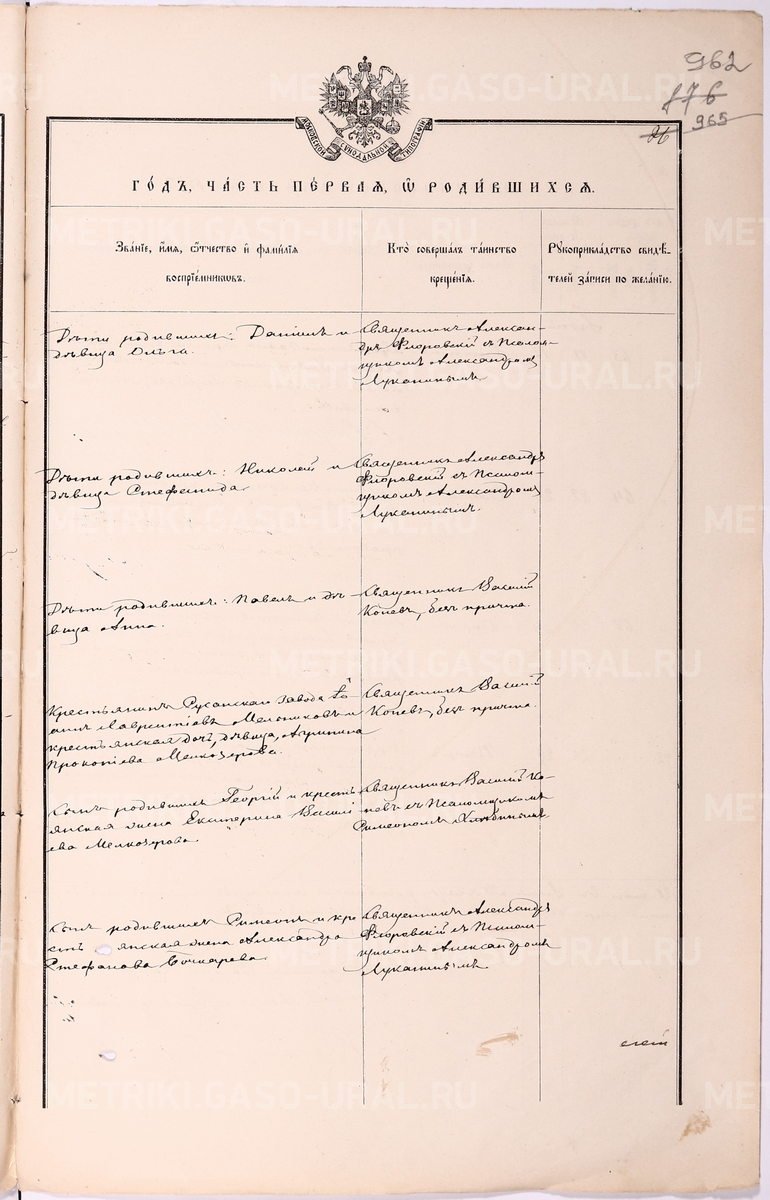 METRIKI.GASO-URAL.RU
962
176
965
26
МОСКОВСКОЙ СѴНОДАЛЬНОЙ ТИПОГРАФІИ
ГО́ДЪ, ЧА́СТЬ ПЕ́РВАЯ, Ѡ҆ РОДИ́ВШИХСЯ.
Зва́нїе, и҆́мя, ѻ҆́тчество и҆ фами́лїя
воспрїе́мникѡвъ.
Кто̀ соверша́лъ та́инство
креще́нїя.
Рꙋкоприкла́дство свидѣ́-
телей за́писи по жела́нїю.
Дѣти родившихъ: Даніилъ и
дѣвица Ольга.
Священникъ Алексан-
дръ Флоровскій съ Псалом-
щикомъ Александромъ
Лукашинымъ.
Дѣти родившихъ: Николай и
дѣвица Стефанида
Священникъ Александръ
Флоровскій съ Псалом-
щикомъ Александромъ
Лукашинымъ.
Дѣти родившихъ: Павелъ и дѣ-
вица Анна.
Священникъ Василій
Копевъ, безъ причта.
Крестьянинъ завода Іо-
аннъ Лаврентіевъ Мельниковъ и
крестьянская дочь, дѣвица, Агрипина
Прокопіева Мелкозерова.
Священникъ Василій
Копевъ, безъ причта.
Сынъ родившихъ Георгій и кресть
янская жена Екатерина Василі
ева Мелкозерова.
Священникъ Василій Ко-
певъ съ Псаломщикомъ
Симеономъ Хлѣбинымъ.
Сынъ родившихъ Симеонъ и кре
стьянская жена Александра
Стефанова Бочкарева.
Священникъ Александръ
Флоровскій съ Псалом-
щикомъ Александромъ
Лукашинымъ.